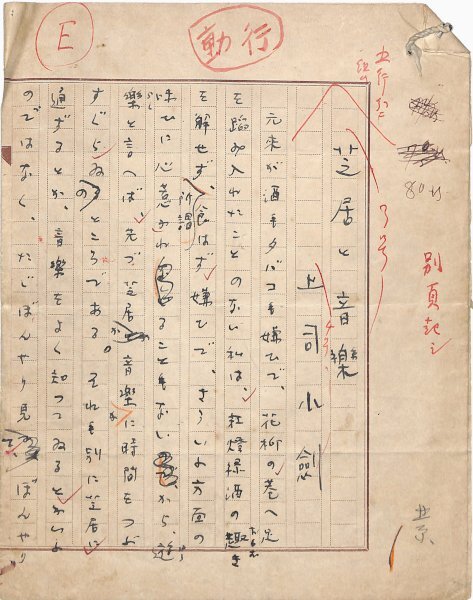 行動
E
別頁起シ
3号
芝居と音樂
上司小劍
元來が酒もタバコも嫌ひで、花柳の巷へ足
を踏み入れたことのない私は、紅燈緑酒の趣き
を解せず、所謂食はず嫌ひで、さういふ方面の
味ひに心惹かれることもないから、遊
樂と言へば、先づ芝居か音樂に時間をつぶ
すぐらゐのところである。それも別に芝居に
通ずるとか、音樂をよく知つてゐるとかいふ
のではなく、たゞぼんやり見て、ぼんやり